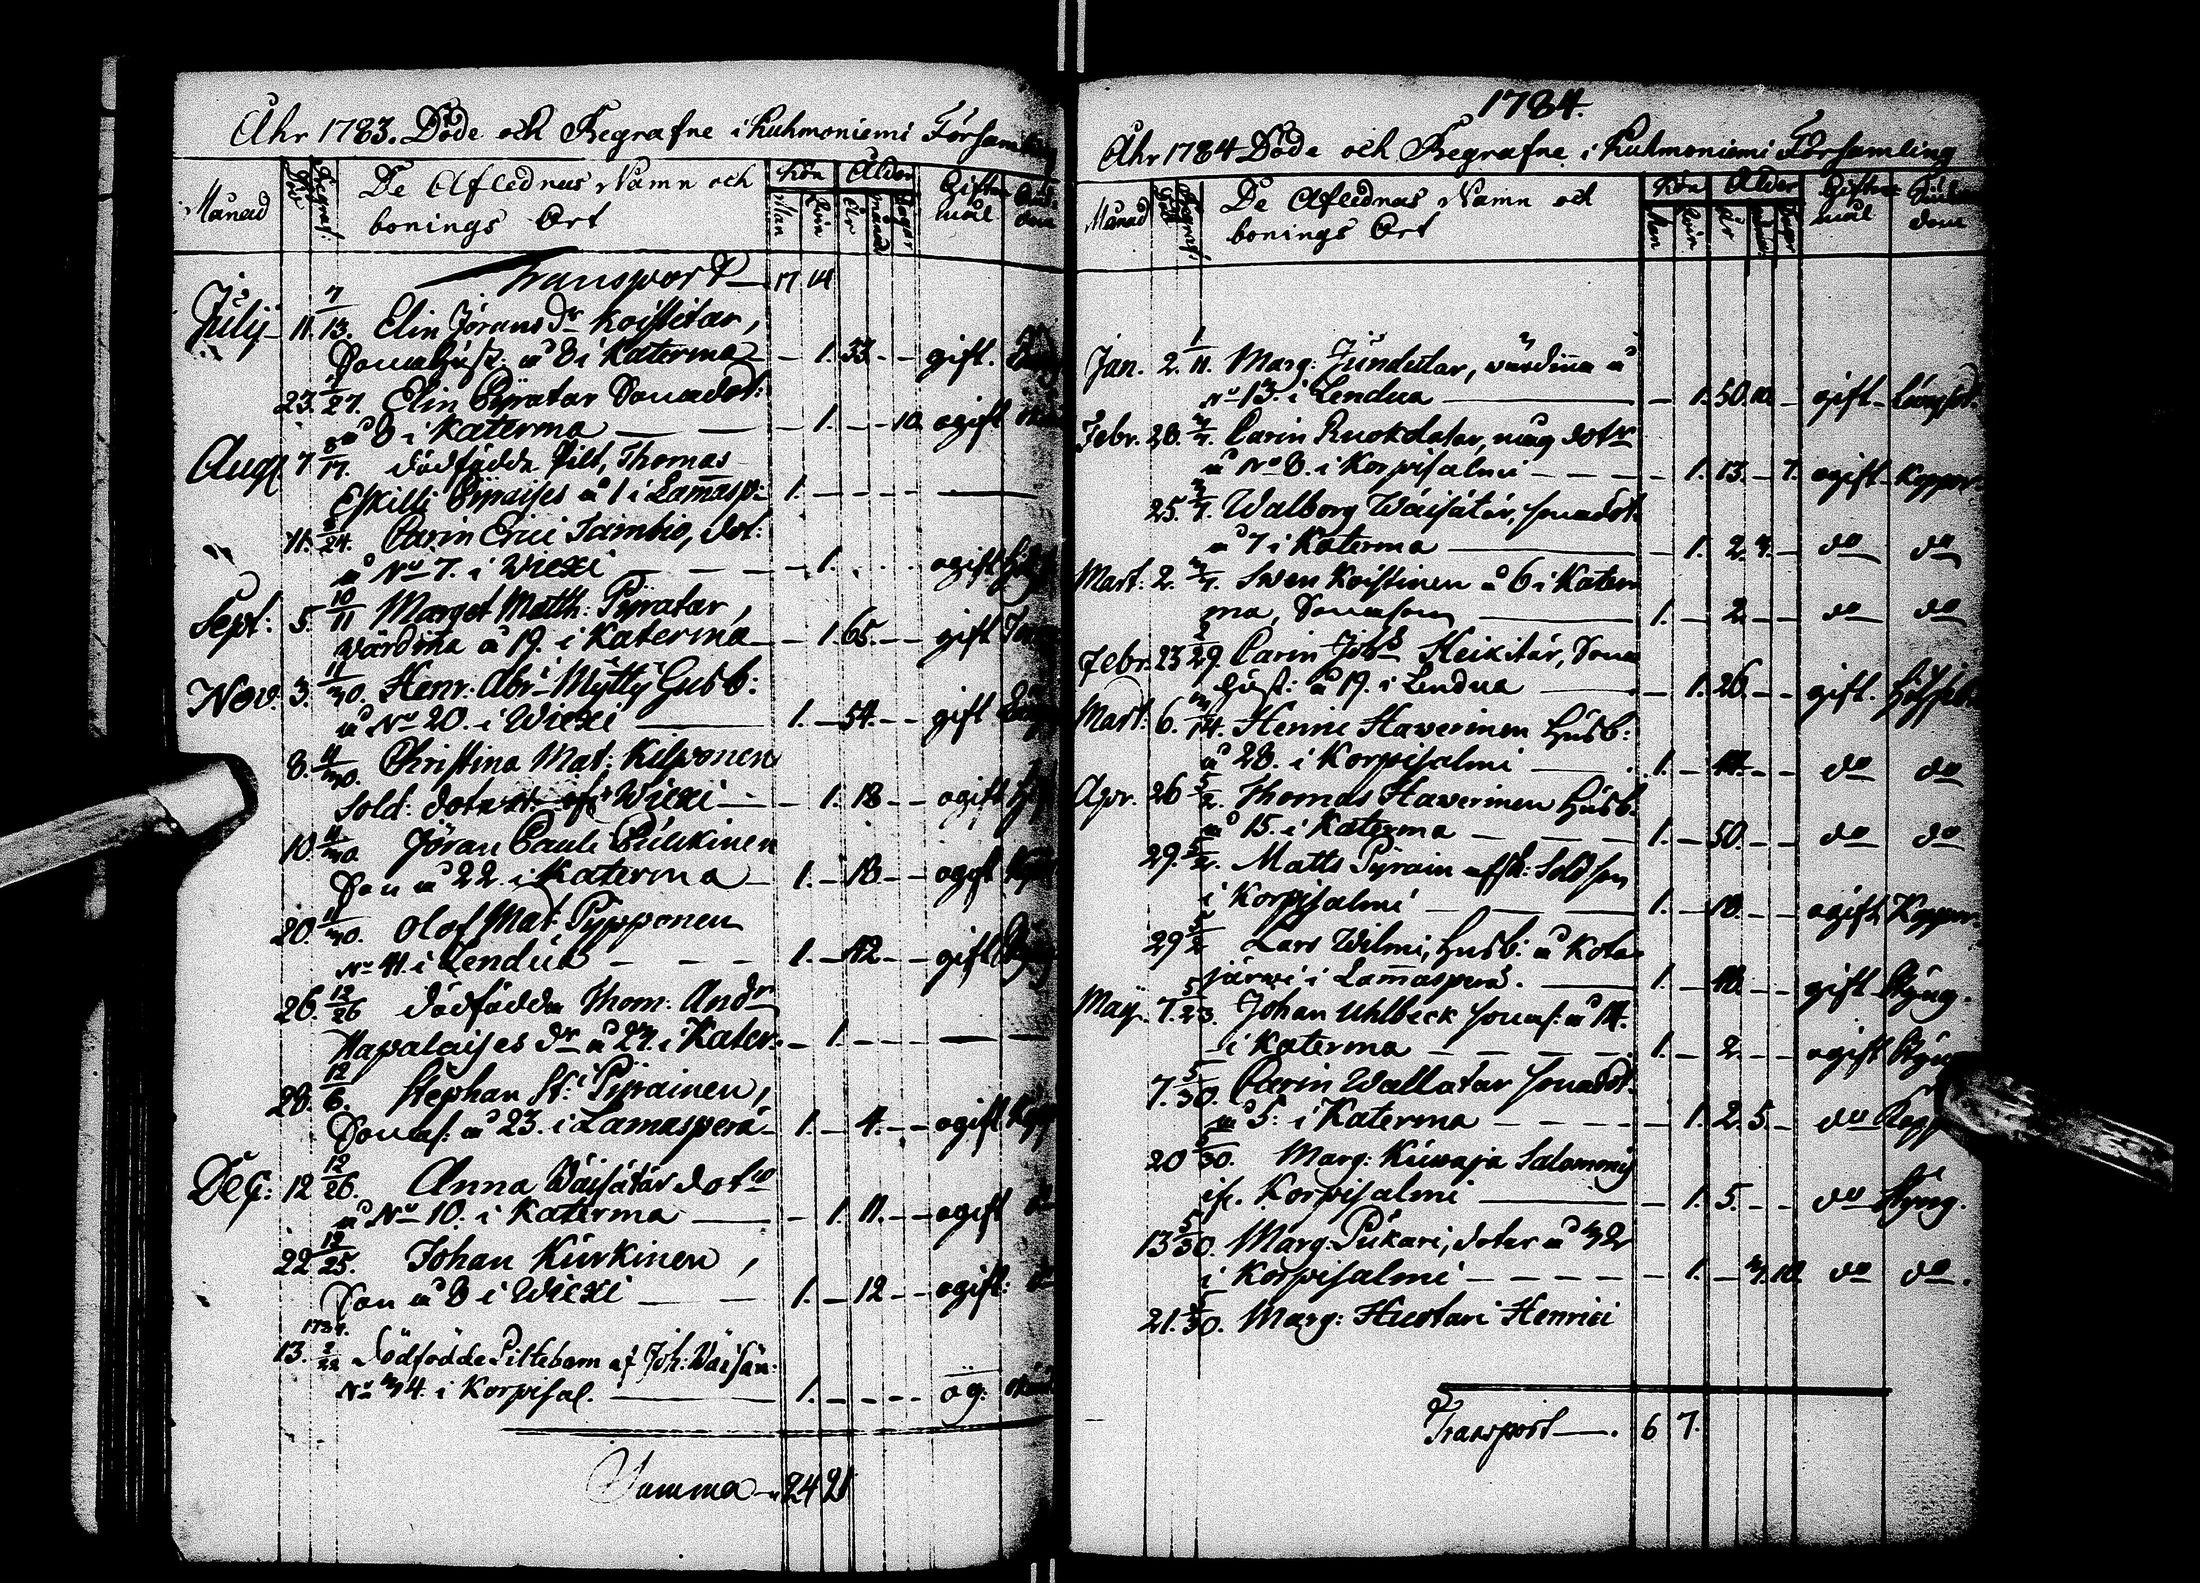 Åhr 1783. Döde och Begrafne i Kuhmoniemi Församling
Månad Död Begraf: De Aflednas Namn och bonings Ort Kön Man Kvin Ålder År månad dagar Giftermål Siukdom
Transport 17 14
July 11. 7/13. Elin Jörans Dr Koistitar,
Sonahust: å 8 i Katerma — 1. 33. — — gift.
23. 7/27. Elin Pyratar Sonadot:
å 8 i Katerma — — 1. — — 10. ogift
Aug 7 8/17. dödfödde Pilt, Thomas
Eskilli Pyraises å 1 i Lamasp: 1. — — — —
11. 8/24. Carin Erici Tambio, dot:
å No 7. i Wiexi — — — 1. ogift
Sept: 5. 10/11 Marget Matth: Pyratar,
värdina å 19. i Katerma — 1. 65. — — gift
Nov. 3. 11/30. Henr: Abr: Myllÿ Husb:
å No 20. i Wiexi — 1. — 54. — — gift
8. 11/30. Christina Mat: Kilponen
Sold: doter Wiexi — — 1. 18 — — ogift
10. 11/30 Jöran Pauli Piukinen
Son å 22. i Katerma — 1. — 18. — — ogift
20. 11/30. Olof Mat: Pypponen
No 41. i Lendua — — — 1. — 42. — — gift
26. 12/26 dödfödda Thom: Andr
Hapalaises Dr å 27. i Kater: — 1. — — —
28. 12/6. Stephan St: Pyrainen,
Sonas: å 23. i Lamasperä — 1. — 4. — — ogift
Deç: 12 12/26. Anna Wäisätär dotr
å No 10. i Katerma — — 1. 11. — — ogift
22. 12/25. Johan Kurkinen,
Son å 8 i Wiexi — — 1. — 12 — — ogift:
1784.
13. 2/22 Dödfödde Piltebarn af Joh: Wäisän:
No 34. i Korpisal. — 1. — — — — og:
Summa — 24 21
1784.
Åhr 1784 Döde och Begrafne i Kuhmoniemi Församling
Månad Död Begraf: De Aflednas Namn och bonings Ort Kön Man Kvin Ålder År månad dagar Giftermål Siukdom
Jan. 2. 1/11. Marg: Jundutar, värdina å
No 13. i Lendua — — 1. 50. 10. — gift
Febr. 20. 3/7. Carin Ruokolatar, dotr
å No 8. i Korpisalmi — — — — 1. 13. — 7. ogift Koppor
25. 3/7. Walborg Wäisätär, sonadot:
å 7 i Katerma — — 1. 2. 3. — do do
Mart: 2. 3/7. Swen Koistinen å 6 i Kater
ma, Sonason — 1. — 2. — — do do
Febr. 23 2/29. Carin Johs Heikitär, Sona
hust: å 19. i Lendua — — 1. 26. — — gift.
Mart: 6. 3/14. Henric Hawerinen Husb:
å 28. i Korpisalmi — 1. — 44. — — do do
Apr. 26 5/2. Thomas Hawerinen Husb:
å 15. i Katerma — — — 1. — 50. — — do do
29. 5/2. Matts Pyrain afsk: Sold son
i Korpisalmi — — — 1. — 10. — — ogift Koppor
29 5/2 Lars Wilmi, Husb: å Kota
järwi i Lamasperä. — 1. — 40. — — gift Styng.
May. 7. 5/23. Johan Uhlbeck sonas: å 14.
i Katerma — — — — 1. — 2. — — ogift
7. 5/30. Carin Wallatar sonadot:
å 5: i Katerma — — — — — 1. 2. 5. — do
20 5/30. Marg: Kuwaja Salomonis
Korpisalmi — — 1. 5. — — do Styng.
13 5/30. Marg: Pukari, doter å 32
i Korpisalmi — — — — — 1. — 3. 10. do do.
21. 5/30. Marg: Huotari Henrici
Transport — . 6 7.